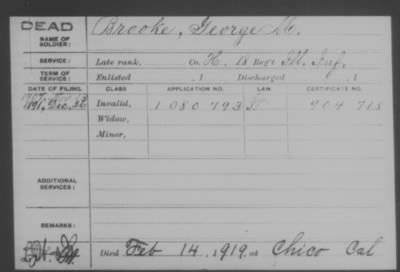 DEAD
NAME OF SOLDIER: Brooke, George M.
SERVICE: Late rank, Co. K, 18 Reg't Ill. Inf.
TERM OF SERVICE: Enlisted , 1 Discharged , 1
DATE OF FILING. CLASS APPLICATION NO. LAW CERTIFICATE NO.
Invalid, 1080793 904718
Widow,
Minor,
ADDITIONAL SERVICES:
REMARKS:
Died Feb 14, 1919, at Chico Cal